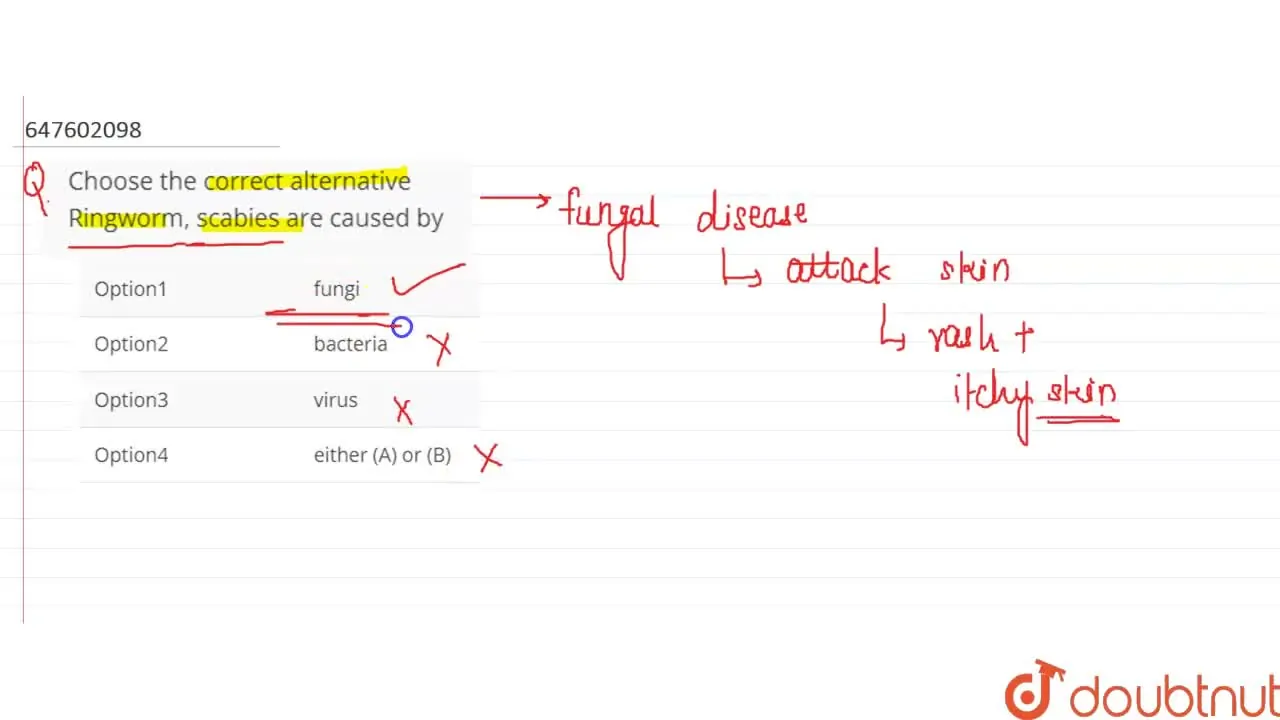 647602098
Q. Choose the correct alternative
Ringworm, scabies are caused by
Option1 fungi
Option2 bacteria
Option3 virus
Option4 either (A) or (B)
fungal disease
attack skin
rash +
itchy skin
doubtnut